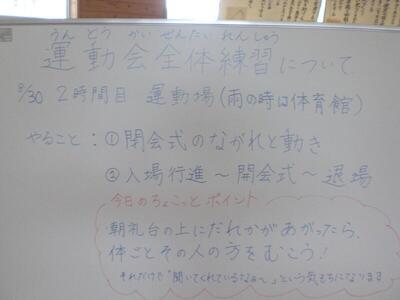 うんどうかいぜんたいれんしゅう
運動会全体練習について
8/30 2時間目 運動場(雨の時は体育館)
やること:①閉会式のながれと動き
②入場行進~開会式~退場
今日のちょこっとポイント
朝礼台の上にだれかがあがったら、
体ごとその人の方をむこう!
それだけで"聞いてくれているなぁ~"という気もちになります